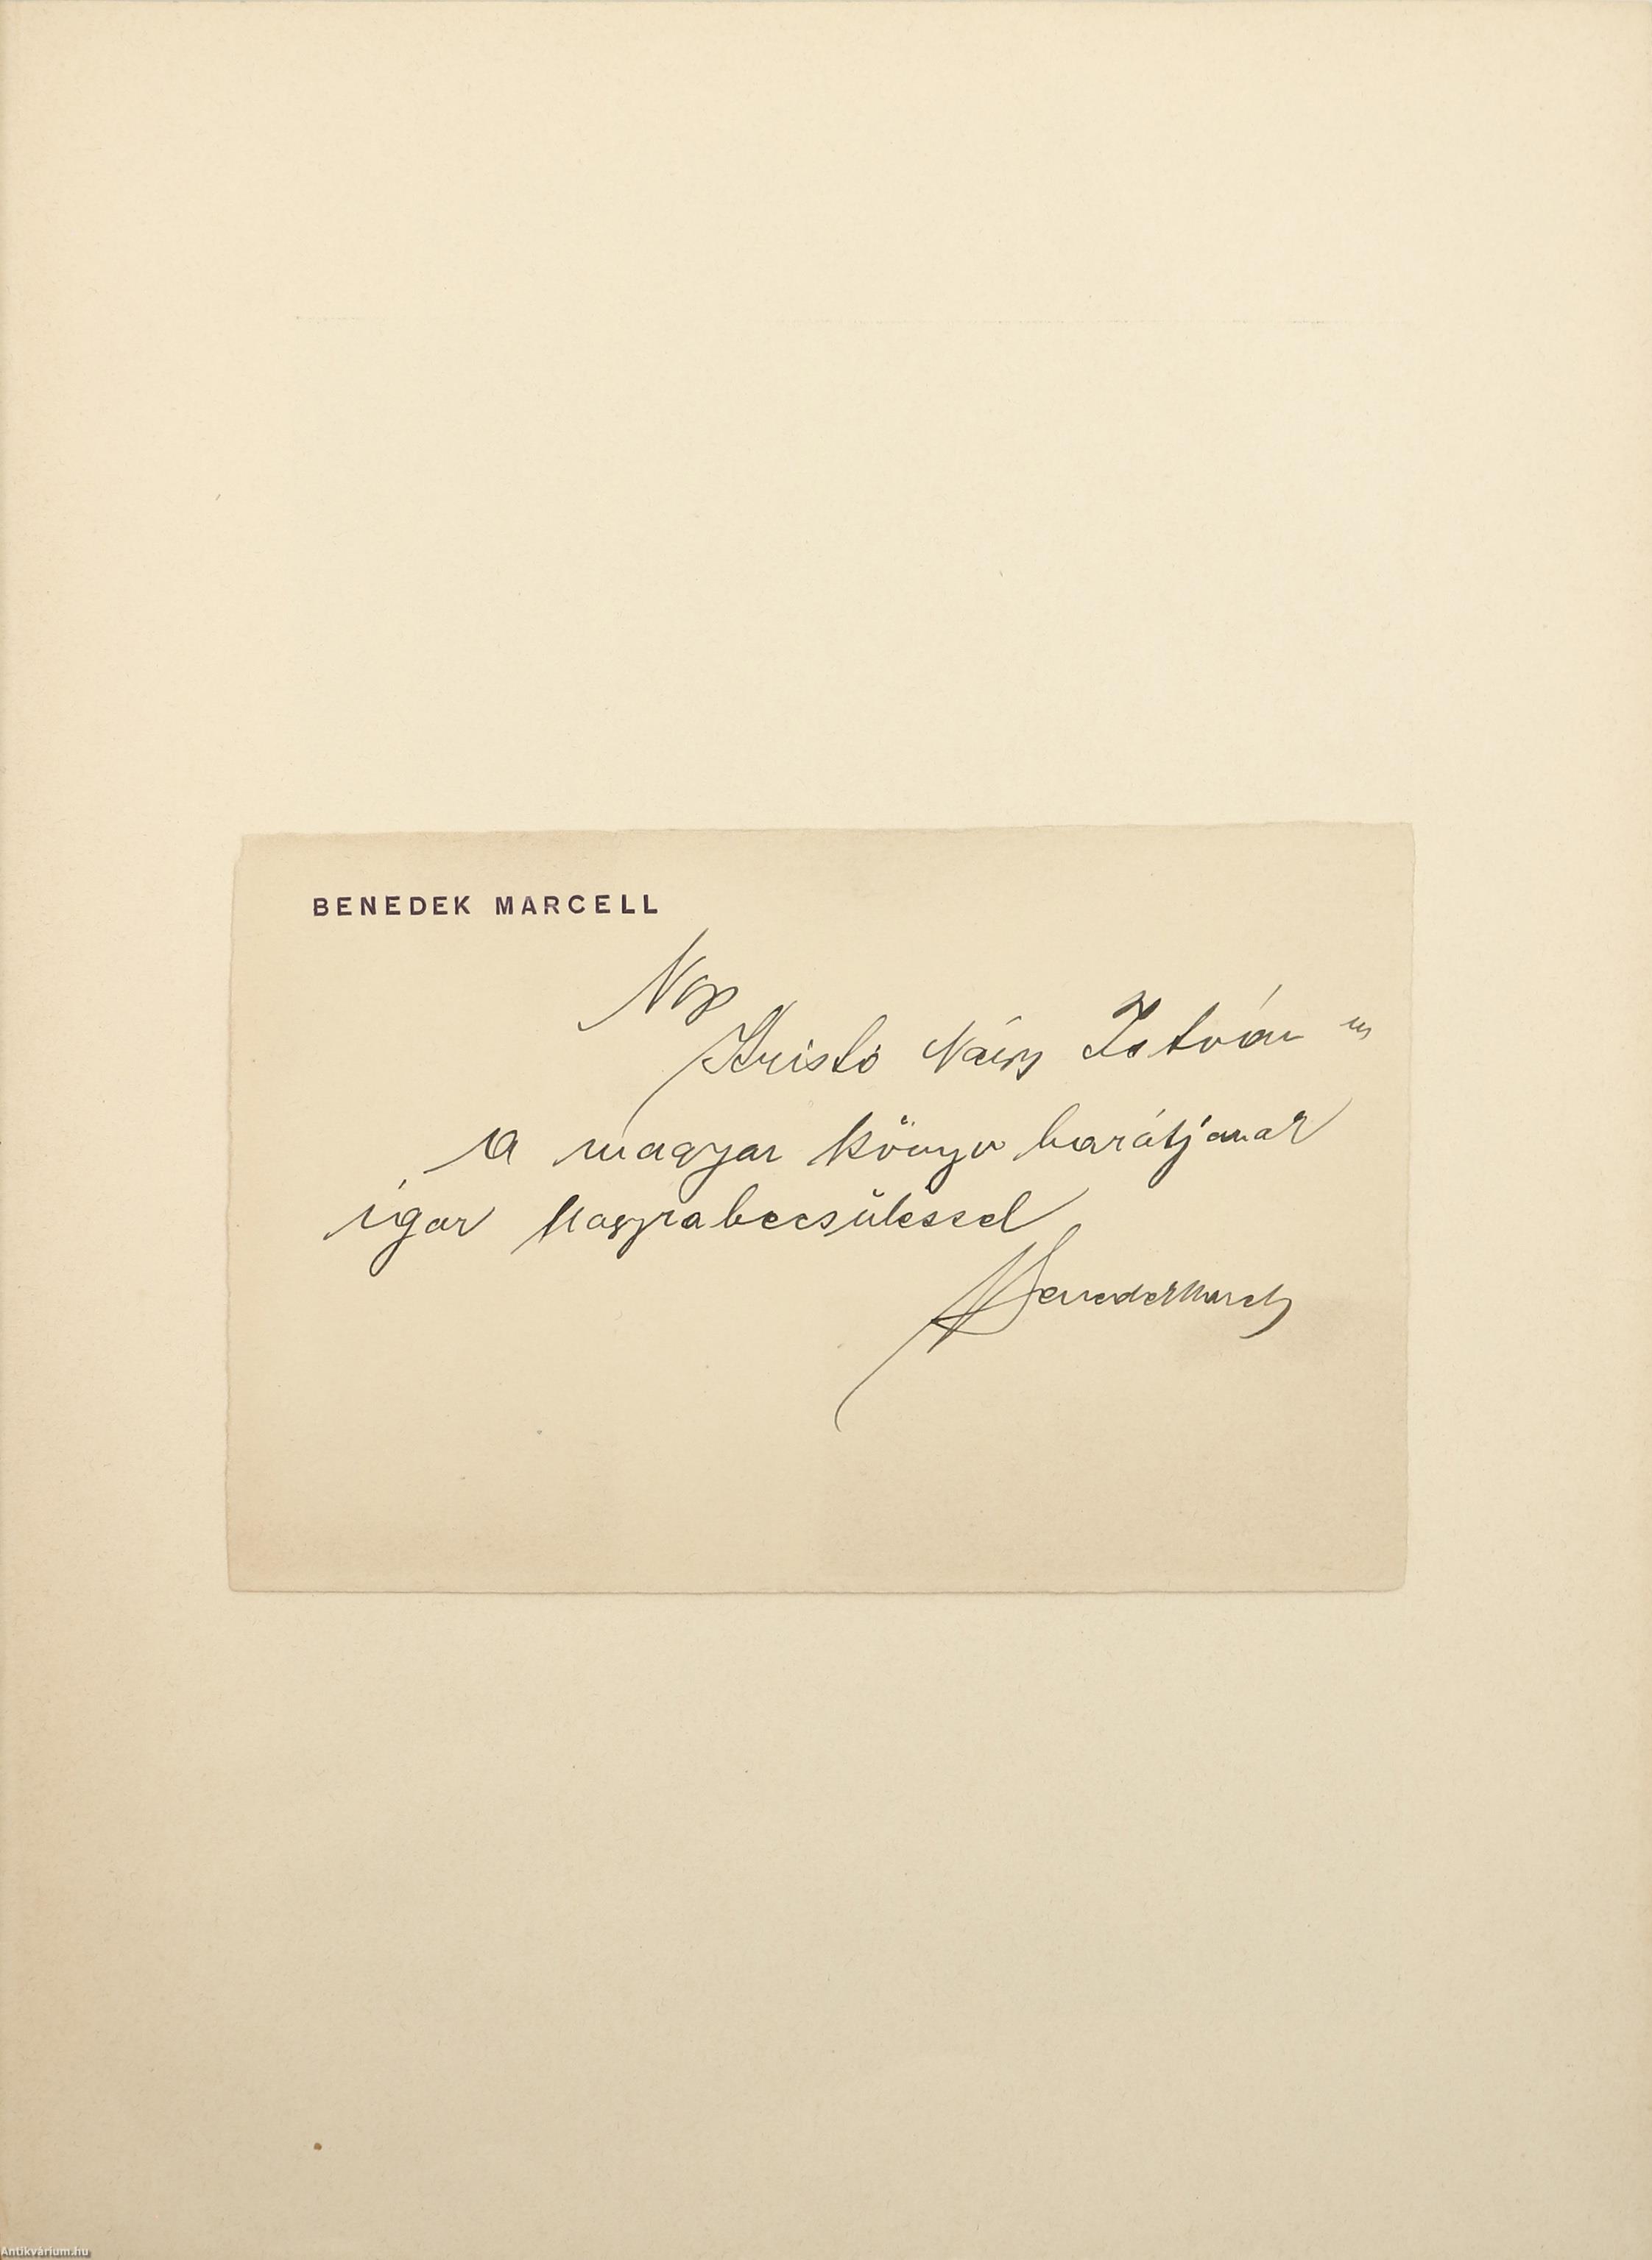 BENEDEK MARCELL
Nagys
Kristó Nagy István úr,
a magyar könyv barátjának
igaz nagyrabecsüléssel
Benedek Marcell
Antikvárium.hu